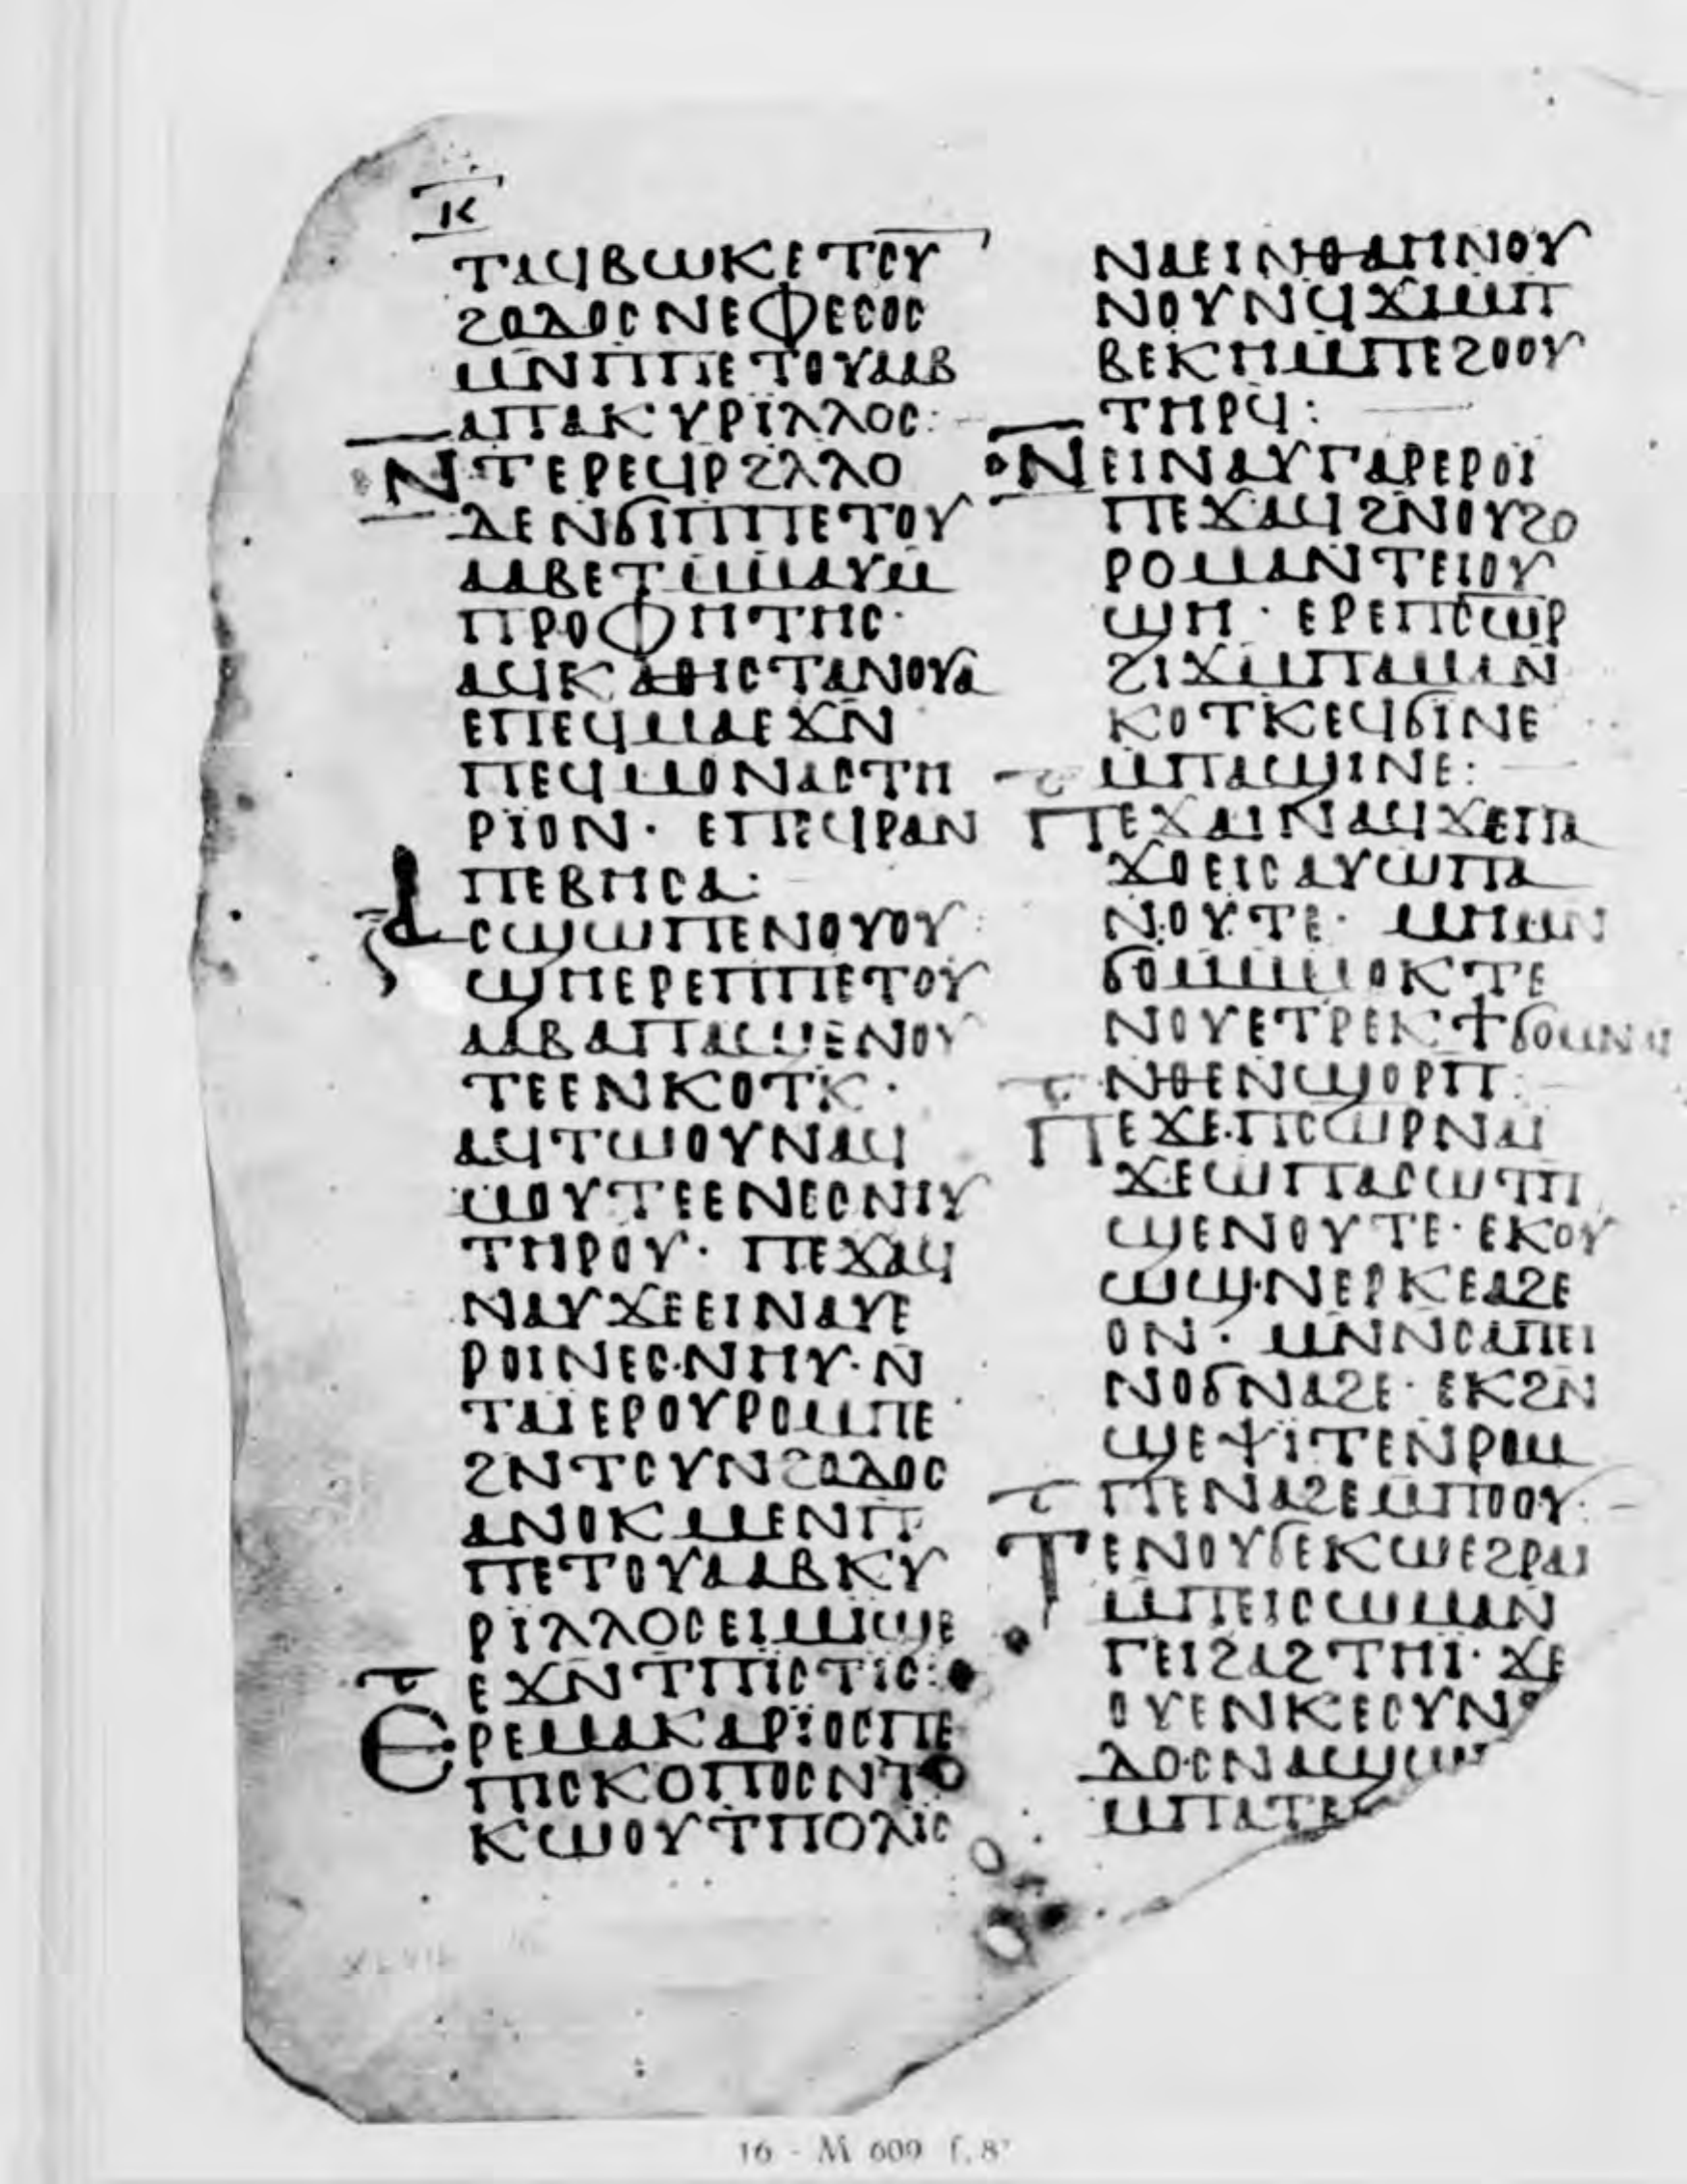 ⲕ
ⲧⲁϥⲃⲱⲕⲉⲧⲥⲩ
ϩⲟⲇⲟⲥⲛⲉⲫⲉⲥⲟⲥ
ⲙⲛⲡⲡⲉⲧⲟⲩⲁⲁⲃ
ⲁⲡⲁⲕⲩⲣⲓⲗⲗⲟⲥ:
ⲛⲧⲉⲣⲉϥⲣϩⲗⲗⲟ
ⲇⲉⲛϭⲓⲡⲡⲉⲧⲟⲩ
ⲁⲁⲃⲉⲧⲙⲙⲁⲩⲙ
ⲡⲣⲟⲫⲏⲧⲏⲥ·
ⲁϥⲕⲁⲑⲓⲥⲧⲁⲛⲟⲩⲁ
ⲉⲡⲉϥⲙⲁⲉϫⲛ
ⲡⲉϥⲙⲟⲛⲁⲥⲧⲏ
ⲣⲓⲟⲛ· ⲉⲡⲉϥⲣⲁⲛ
ⲡⲉⲃⲏⲥⲁ:
ⲁⲥϣⲱⲡⲉⲛⲟⲩⲟⲩ
ϣⲏⲉⲣⲉⲡⲡⲉⲧⲟⲩ
ⲁⲁⲃⲁⲡⲁϣⲉⲛⲟⲩ
ⲧⲉⲉⲛⲕⲟⲧⲕ·
ⲁϥⲧⲱⲟⲩⲛⲁϥ
ⲙⲟⲩⲧⲉⲉⲛⲉⲥⲛⲏⲩ
ⲧⲏⲣⲟⲩ· ⲡⲉϫⲁϥ
ⲛⲁⲩϫⲉⲉⲓⲛⲁⲩⲉ
ⲣⲟⲓⲛⲉⲥⲛⲏⲩ·ⲛ
ⲧⲁⲓⲉⲣⲟⲩⲣⲟⲙⲡⲉ
ϩⲛⲧⲥⲩⲛϩⲟⲇⲟⲥ
ⲁⲛⲟⲕⲙⲉⲛⲡ
ⲡⲉⲧⲟⲩⲁⲁⲃⲕⲩ
ⲣⲓⲗⲗⲟⲥⲉⲓⲙⲓϣⲉ
ⲉϫⲛⲧⲡⲓⲥⲧⲓⲥ:
ⲉⲣⲉⲙⲁⲕⲁⲣⲓⲟⲥⲡⲉ
ⲡⲓⲥⲕⲟⲡⲟⲥⲛⲧ
ⲕⲱⲟⲩⲧⲡⲟⲗⲓⲥ
ⲛⲁⲉⲓⲛⲑⲁⲡⲛⲟⲩ
ⲛⲟⲩⲛϥϫⲓⲙⲡ
ⲃⲉⲕⲏⲙⲡⲉϩⲟⲟⲩ
ⲧⲏⲣϥ:
ⲛⲉⲓⲛⲁⲩⲅⲁⲣⲉⲣⲟⲓ
ⲡⲉϫⲁϥϩⲛⲟⲩϩⲟ
ⲣⲟⲙⲁⲛⲧⲉⲓⲟⲩ
ϣⲏ· ⲉⲣⲉⲡⲥⲱⲣ
ϩⲓϫⲙⲡⲁⲙⲁⲛ
ⲕⲟⲧⲕⲉϥϭⲓⲛⲉ
ⲙⲡⲁϣⲓⲛⲉ:
ⲡⲉϫⲁⲓⲛⲁϥϫⲉⲡⲁ
ϫⲟⲉⲓⲥⲁⲩⲱⲡⲁ
ⲛⲟⲩⲧⲉ· ⲙⲏⲙⲛ
ϭⲟⲙⲙⲙⲟⲕⲧⲉ
ⲛⲟⲩⲉⲧⲣⲉⲕϯϭⲟⲙⲛⲁⲓ
ⲛⲑⲉⲛϣⲟⲣⲡ:
ⲡⲉϫⲉⲡⲥⲱⲣⲛⲁⲓ
ϫⲉⲱⲡⲁⲥⲱⲧⲡ
ϣⲉⲛⲟⲩⲧⲉ·ⲉⲕⲟⲩ
ⲱϣⲛⲉⲣⲕⲉⲁϩⲉ
ⲟⲛ· ⲙⲛⲛⲥⲁⲡⲉⲓ
ⲛⲟϭⲛⲁϩⲉ·ⲉⲕϩⲛ
ϣⲉⲯⲓⲧⲉⲛⲣⲟⲙ
ⲡⲉⲛⲁϩⲉⲙⲡⲟⲟⲩ:
ⲧⲉⲛⲟⲩϭⲉⲕⲱⲉϩⲣⲁⲓ
ⲙⲡⲉⲓⲥⲱⲙⲁⲛ
ⲅⲉⲓϩⲁϩⲧⲏⲓ· ϫⲉ
ⲟⲩⲉⲛⲕⲉⲥⲩⲛϩ
ⲇⲟⲥⲛⲁϣⲱ
ⲙⲡⲁⲧⲉ
16 - M 609 f. 8ᵛ